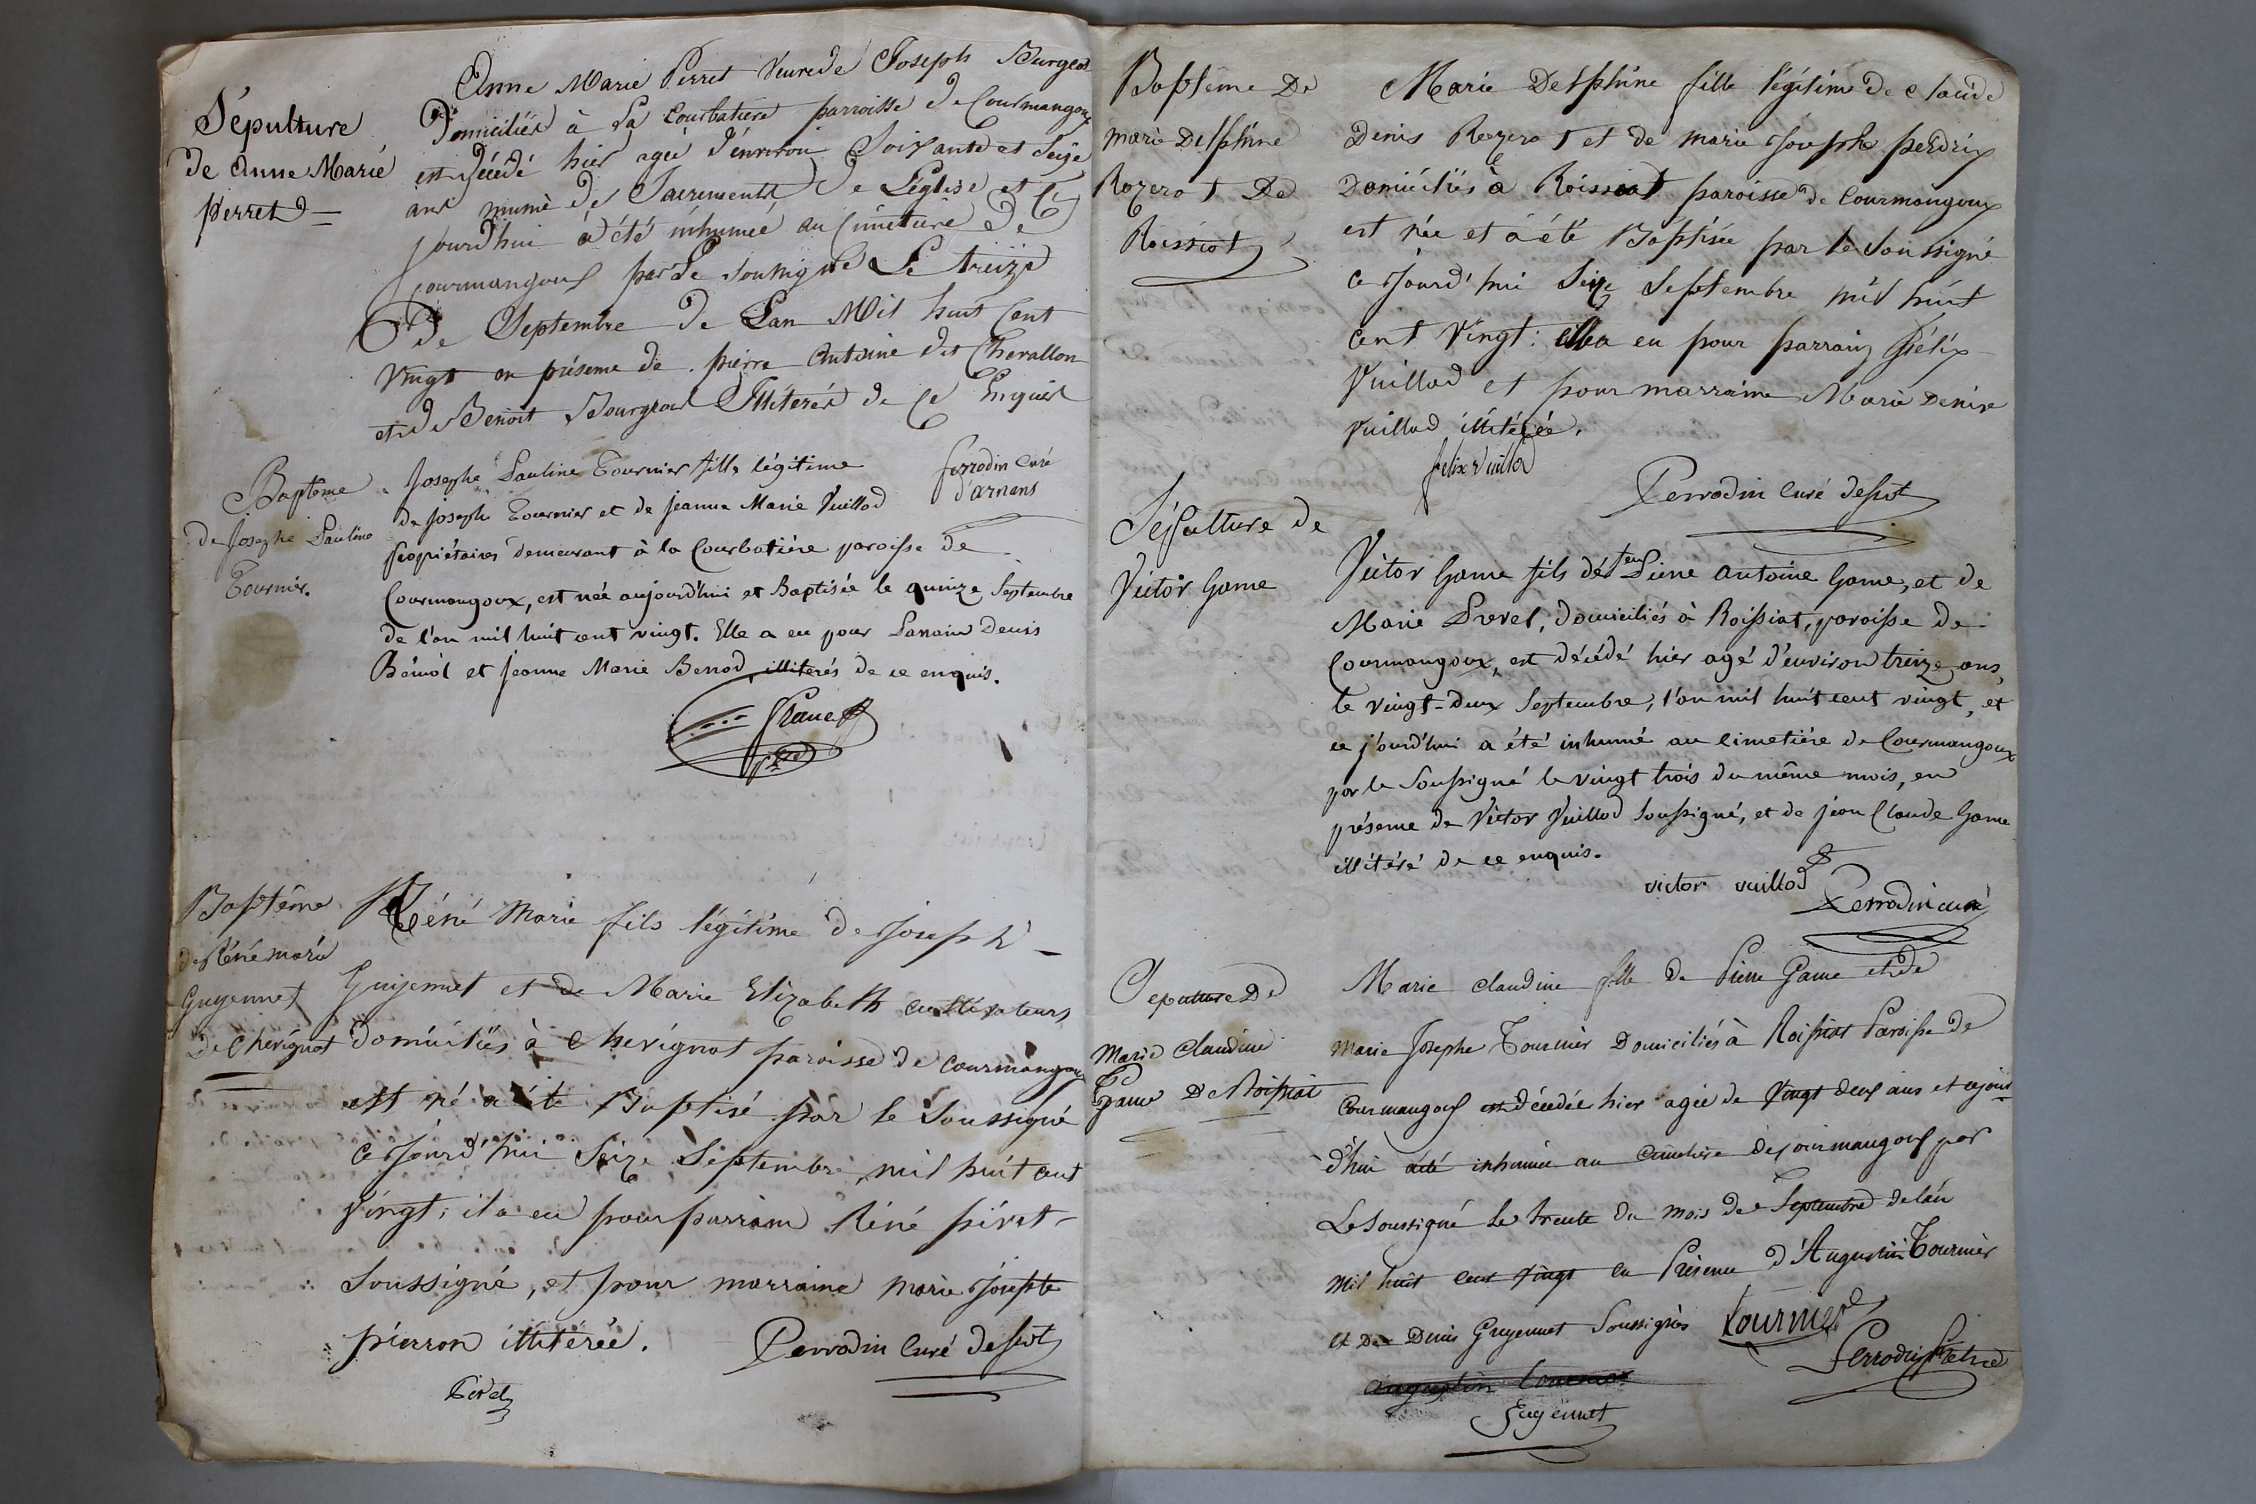 Sépulture
de Anne Marie
perret
Anne Marie Perret Veuve de Joseph Bourgeois
Domiciliée à La Courbatiere parroisse de Courmangoux
est décédé hier agée d'environ Soixante et Seize
ans munie des Sacrements de L'église et ce
jourd'hui a été inhumée au Cimetiere de
Courmangoux par Le soussigné Le treize
de Septembre de Lan Mil huit Cent
Vingt en présence de pierre Antoine dit Chevallon
et de Benoit Bourgeois Illiterés de ce Enquis
perrodin curé
d'arnans
Baptême
de Josephe Pauline
Tournier.
Josephe Pauline Tournier fille légitime
de Joseph Tournier et de Jeanne Marie Vuillod
propriétaires demeurant à la Courbatiére paroisse de
Courmangoux, est née aujourd'hui et Baptisée le quinze Septembre
de l'an mil huit cent vingt. Elle a eu pour Parain Denis
et Jeanne Marie Benod, illiterés de ce enquis.
Baptême
de Réné marie
Guyennet
De Chevignat
Réné Marie fils légitime de Joseph
Guyennet et de Marie Elizabeth cultivateurs
domiciliés à Chevignat paroisse de Courmangoux
est né a été Baptisé par le Soussigné
ce jourd'hui Seize Septembre mil huit cent
Vingt; il a eu pour parrain Réné pirat
Soussigné, et pour marraine marie josephte
pierron illitérée.
Perrodin Curé desst
Baptême De
marie Delphine
Rozerot De
Roissiat
Marie Delphine fille légitime de claude
Denis Rozerot et de marie josephe perdrix
Domiciliés à Roissiat paroisse de Courmangoux
est née et a été Baptisée par le Soussigné
ce jourd'hui Seize Septembre mil huit
cent Vingt: elle a eu pour parrain félix
Vuillod et pour marraine Marie Denise
Vuillod illitérée.
felix Vuillod
Perrodin Curé desst
Sépulture de
Victor Game
Victor Game fils de feu Pierre Antoine Game, et de
Marie Privel, domiciliés à Roissiat, paroisse de
Courmangoux, est décédé hier agé d'environ treize ans,
le vingt-deux Septembre, l'an mil huit cent vingt, et
ce jourd'hui a été inhumé au cimetiére de Courmangoux
par le Soussigné le vingt trois du même mois, en
présence de Victor Vuillod Soussigné, et de Jean Claude Game
illitéré de ce enquis.
victor vuillod
Perrodin curé
Sepulture De
Marie Claudine
Game De Roissiat
Marie claudine fille de Pierre Game et de
Marie Josephe Tournier Domiciliés à Roissiat Paroisse de
Courmangoux est décédée hier agée de Vingt deux ans et ce jour
d'hui a été inhumée au Cimetiere de Courmangoux par
Le soussigné le trente du mois de Septembre de l'an
Mil huit cent vingt en Présence d'Augustin Tournier
et De Denis Guyennet Soussignés
tournier
Perrodin Prêtre
augustin tournier
Guyennet